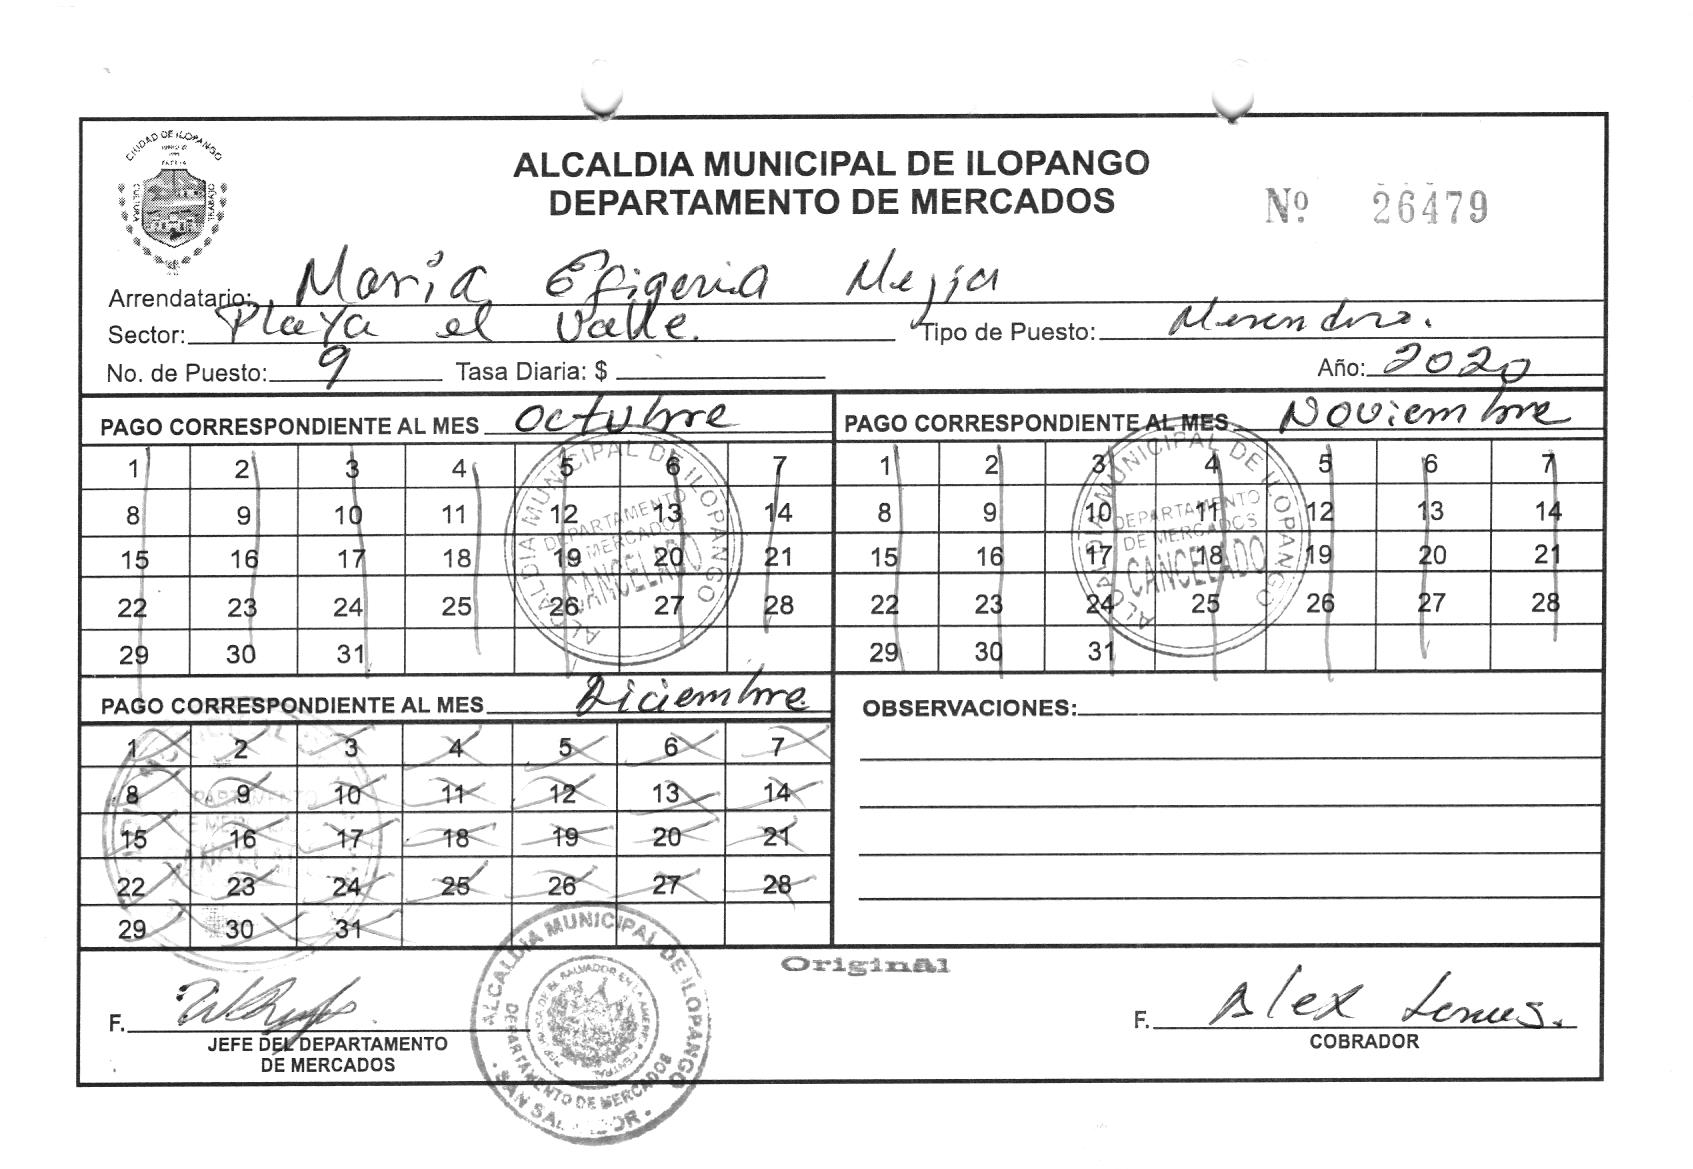 CIUDAD DE ILOPANGO
CULTURA
TRABAJO
ALCALDIA MUNICIPAL DE ILOPANGO
DEPARTAMENTO DE MERCADOS
Nº 26479
Arrendatario: María Efigenia Mejia
Sector: Playa el Valle. Tipo de Puesto: Merendero.
No. de Puesto: 9 Tasa Diaria: $ Año: 2020
PAGO CORRESPONDIENTE AL MES Octubre
1 2 3 4 5 6 7
8 9 10 11 12 13 14
15 16 17 18 19 20 21
22 23 24 25 26 27 28
29 30 31
ALCALDIA MUNICIPAL DE ILOPANGO
DEPARTAMENTO
DE MERCADOS
CANCELADO
PAGO CORRESPONDIENTE AL MES Noviembre
1 2 3 4 5 6 7
8 9 10 11 12 13 14
15 16 17 18 19 20 21
22 23 24 25 26 27 28
29 30 31
ALCALDIA MUNICIPAL DE ILOPANGO
DEPARTAMENTO
DE MERCADOS
CANCELADO
PAGO CORRESPONDIENTE AL MES Diciembre
1 2 3 4 5 6 7
8 9 10 11 12 13 14
15 16 17 18 19 20 21
22 23 24 25 26 27 28
29 30 31
OBSERVACIONES:
Original
F.
JEFE DEL DEPARTAMENTO
DE MERCADOS
ALCALDIA MUNICIPAL DE ILOPANGO
DEPARTAMENTO DE MERCADOS
EL SALVADOR EN LA AMERICA CENTRAL
F. Alex Lemus.
COBRADOR